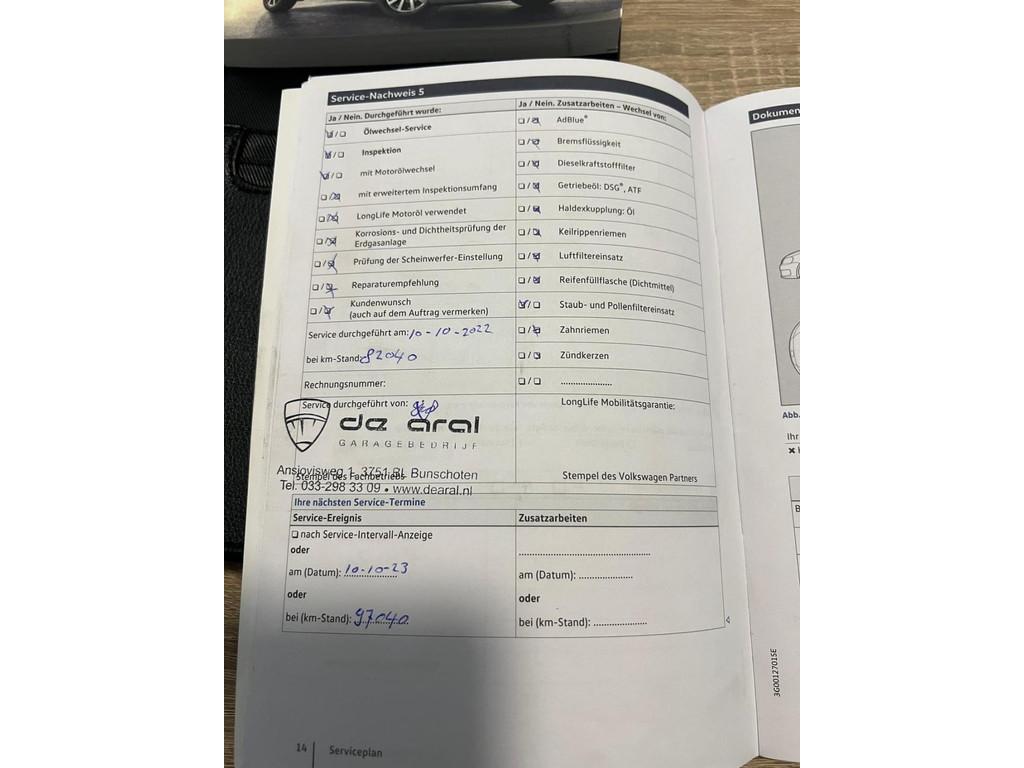 Service-Nachweis 5
Ja / Nein. Durchgeführt wurde:
Ölwechsel-Service
Inspektion
mit Motorölwechsel
mit erweitertem Inspektionsumfang
LongLife Motoröl verwendet
Korrosions- und Dichtheitsprüfung der
Erdgasanlage
Prüfung der Scheinwerfer-Einstellung
Reparaturempfehlung
Kundenwunsch
(auch auf dem Auftrag vermerken)
Service durchgeführt am: 10-10-2022
bei km-Stand: 82040
Rechnungsnummer:
Service durchgeführt von:
de aral
GARAGEBEDRIJF
Ansjovisweg 1, 3751 BL Bunschoten
Stempel des Fachbetriebs
Tel. 033-298 33 09 • www.dearal.nl
Ja / Nein. Zusatzarbeiten – Wechsel von:
AdBlue®
Bremsflüssigkeit
Dieselkraftstofffilter
Getriebeöl: DSG®, ATF
Haldexkupplung: Öl
Keilrippenriemen
Luftfiltereinsatz
Reifenfüllflasche (Dichtmittel)
Staub- und Pollenfiltereinsatz
Zahnriemen
Zündkerzen
LongLife Mobilitätsgarantie:
Stempel des Volkswagen Partners
Ihre nächsten Service-Termine
Service-Ereignis
nach Service-Intervall-Anzeige
oder
am (Datum): 10-10-23
oder
bei (km-Stand): 97040
Zusatzarbeiten
am (Datum):
oder
bei (km-Stand):
14 Serviceplan
Dokumen
Abb.
Ihr
3G0012701SE